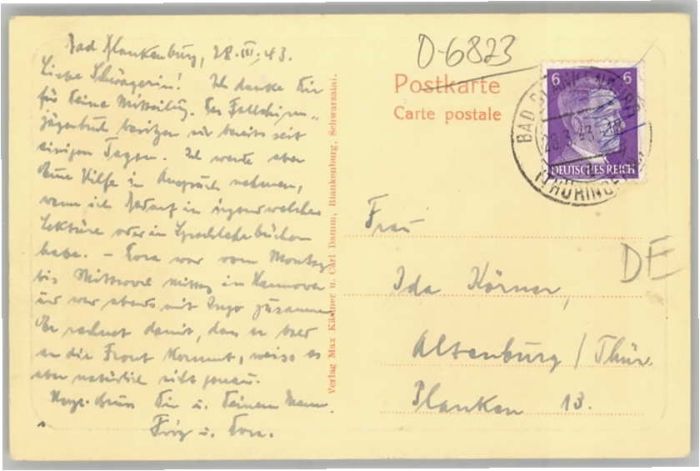 Bad Blankenburg, 28.III.43.
Liebe Schwägerin! Ich danke Dir
für Deine Mitteilg. Das Fallschirm-
jägerbuch besitzen wir bereits seit
einigen Tagen. Ich werde aber
Deine Hilfe in Anspruch nehmen,
wenn ich Bedarf in irgendwelcher
Lektüre oder in Sprachlehrbüchern
habe. – Tora war vom Montag
bis Mittwoch mittag in Hannover
und war abends mit Ingo zusammen
Er rechnet damit, dass er bald
an die Front kommt, weiss es
aber natürlich nicht genau.
Herzl. Gruss Dir u. Deinem Mann.
Fritz u. Tora.
Verlag Max Kästner u. Carl Damm, Blankenburg, Schwarzatal.
0-6823
Postkarte
Carte postale
6 6
DEUTSCHES REICH
BAD BLANKENBURG
(THÜRINGER
Frau
Ida Körner,
Altenburg / Thür.
Planken 13.
DE